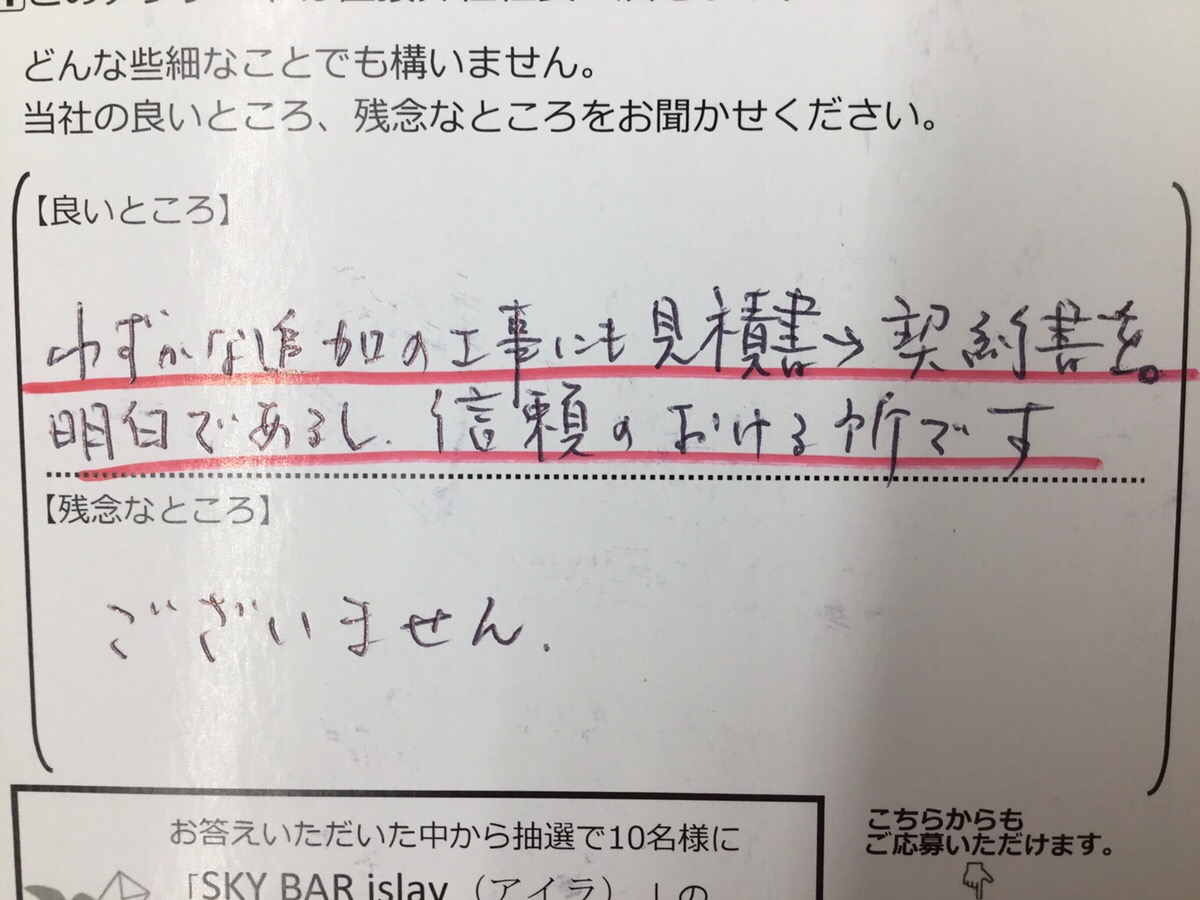 どんな些細なことでも構いません。
当社の良いところ、残念なところをお聞かせください。
【良いところ】
わずかな追加の工事にも見積書→契約書を。
明白であるし、信頼のおける所です
【残念なところ】
ございません.
お答えいただいた中から抽選で10名様に
こちらからも
ご応募いただけます。
「SKY BAR islay（アイラ）」の